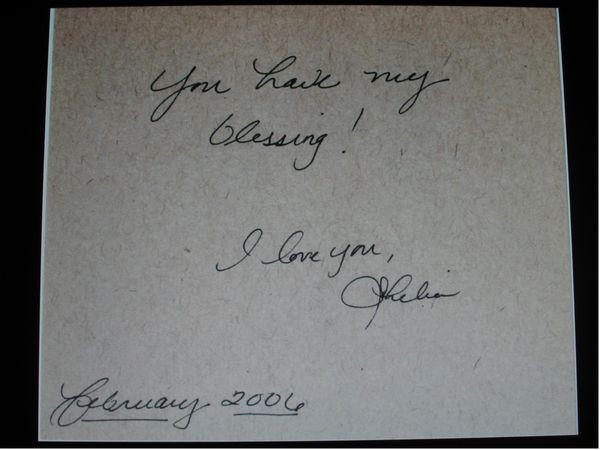 You have my
blessing!
I love you,
Ophelia
February 2006